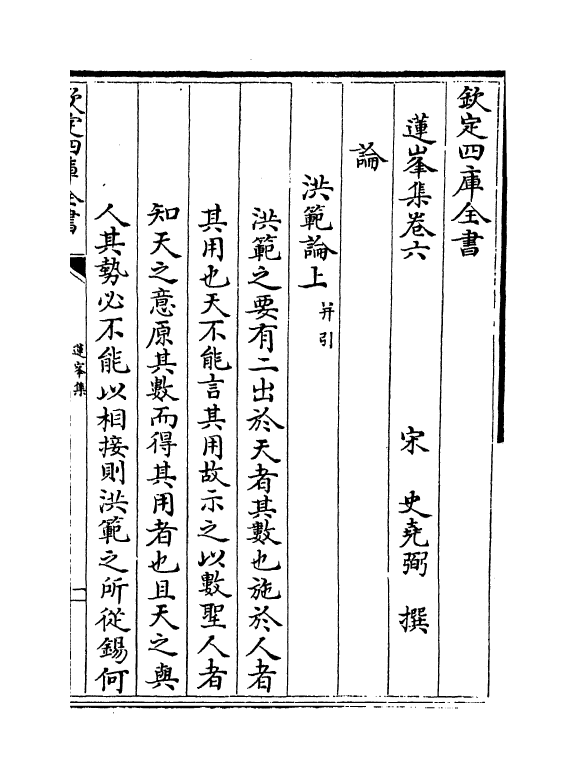 欽定四庫全書
蓮峯集卷六
宋　史堯弼　撰
論
洪範論上 并引
洪範之要有二出於天者其數也施於人者
其用也天不能言其用故示之以數聖人者
知天之意原其數而得其用者也且天之與
人其勢必不能以相接則洪範之所從錫何
欽定四庫全書
蓮峯集